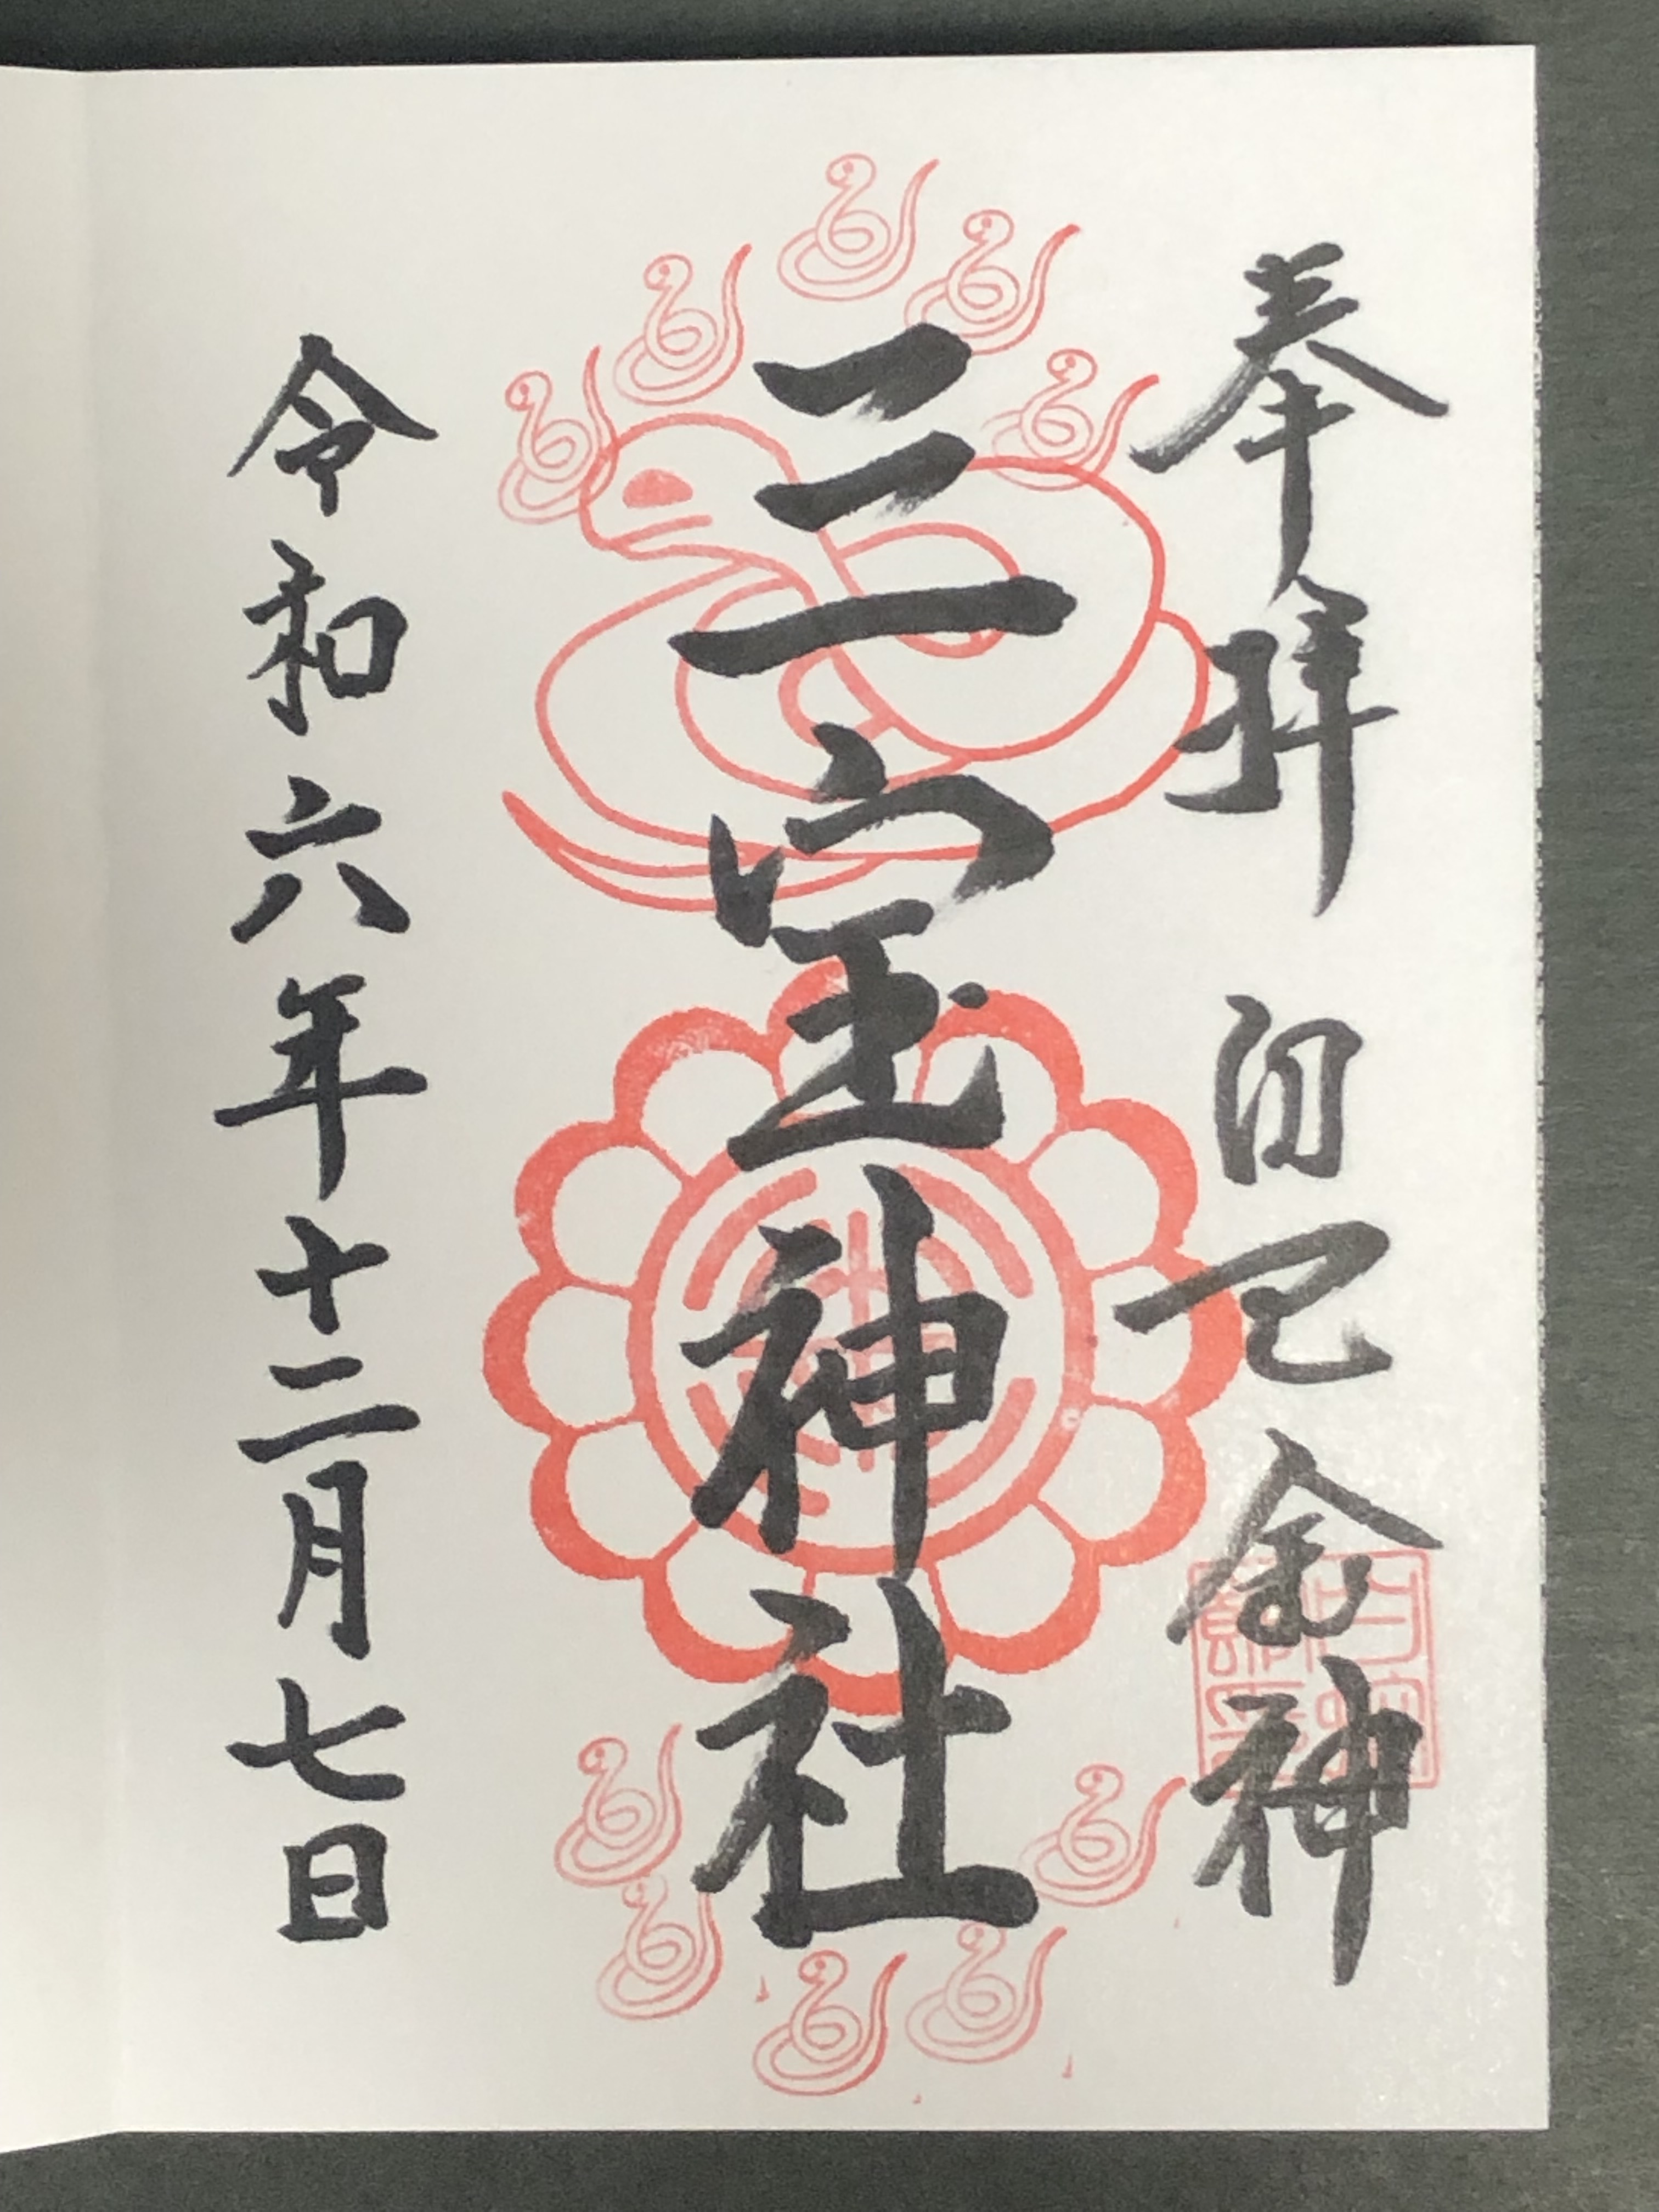 奉拝 白巳金神
三宝神社
令和六年十二月七日